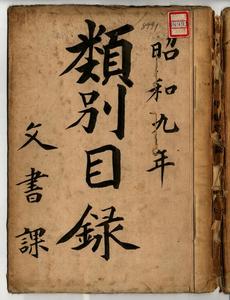 昭和九年
類別目録
文書課